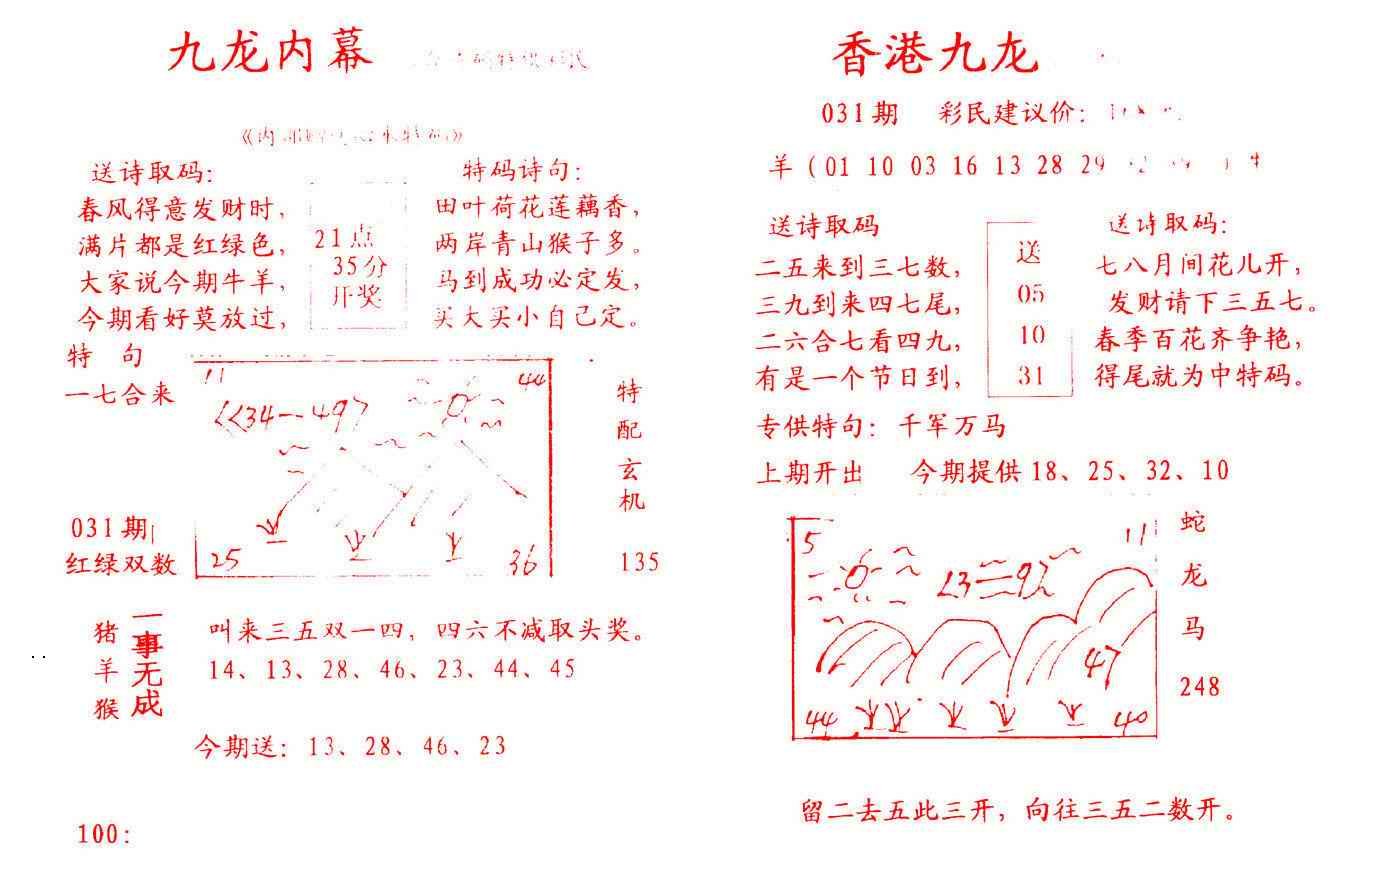 九龙内幕
送诗取码：
春风得意发财时，
满片都是红绿色，
大家说今期牛羊，
今期看好莫放过，
21点
35分
开奖
特码诗句：
田叶荷花莲藕香，
两岸青山猴子多。
马到成功必定发，
买大买小自己定。
特 句
一七合来
031期
红绿双数
11
44
34—49
25
36
特
配
玄
机
135
猪
羊
猴
一事无成
叫来三五双一四，四六不减取头奖。
14、13、28、46、23、44、45
今期送：13、28、46、23
100：
香港九龙
031期 彩民建议价：
羊（01 10 03 16 13 28 29
送诗取码
二五来到三七数，
三九到来四七尾，
二六合七看四九，
有是一个节日到，
送
05
10
31
送诗取码：
七八月间花儿开，
发财请下三五七。
春季百花齐争艳，
得尾就为中特码。
专供特句：千军万马
上期开出 今期提供18、25、32、10
5
11
47
44
40
蛇
龙
马
248
留二去五此三开，向往三五二数开。